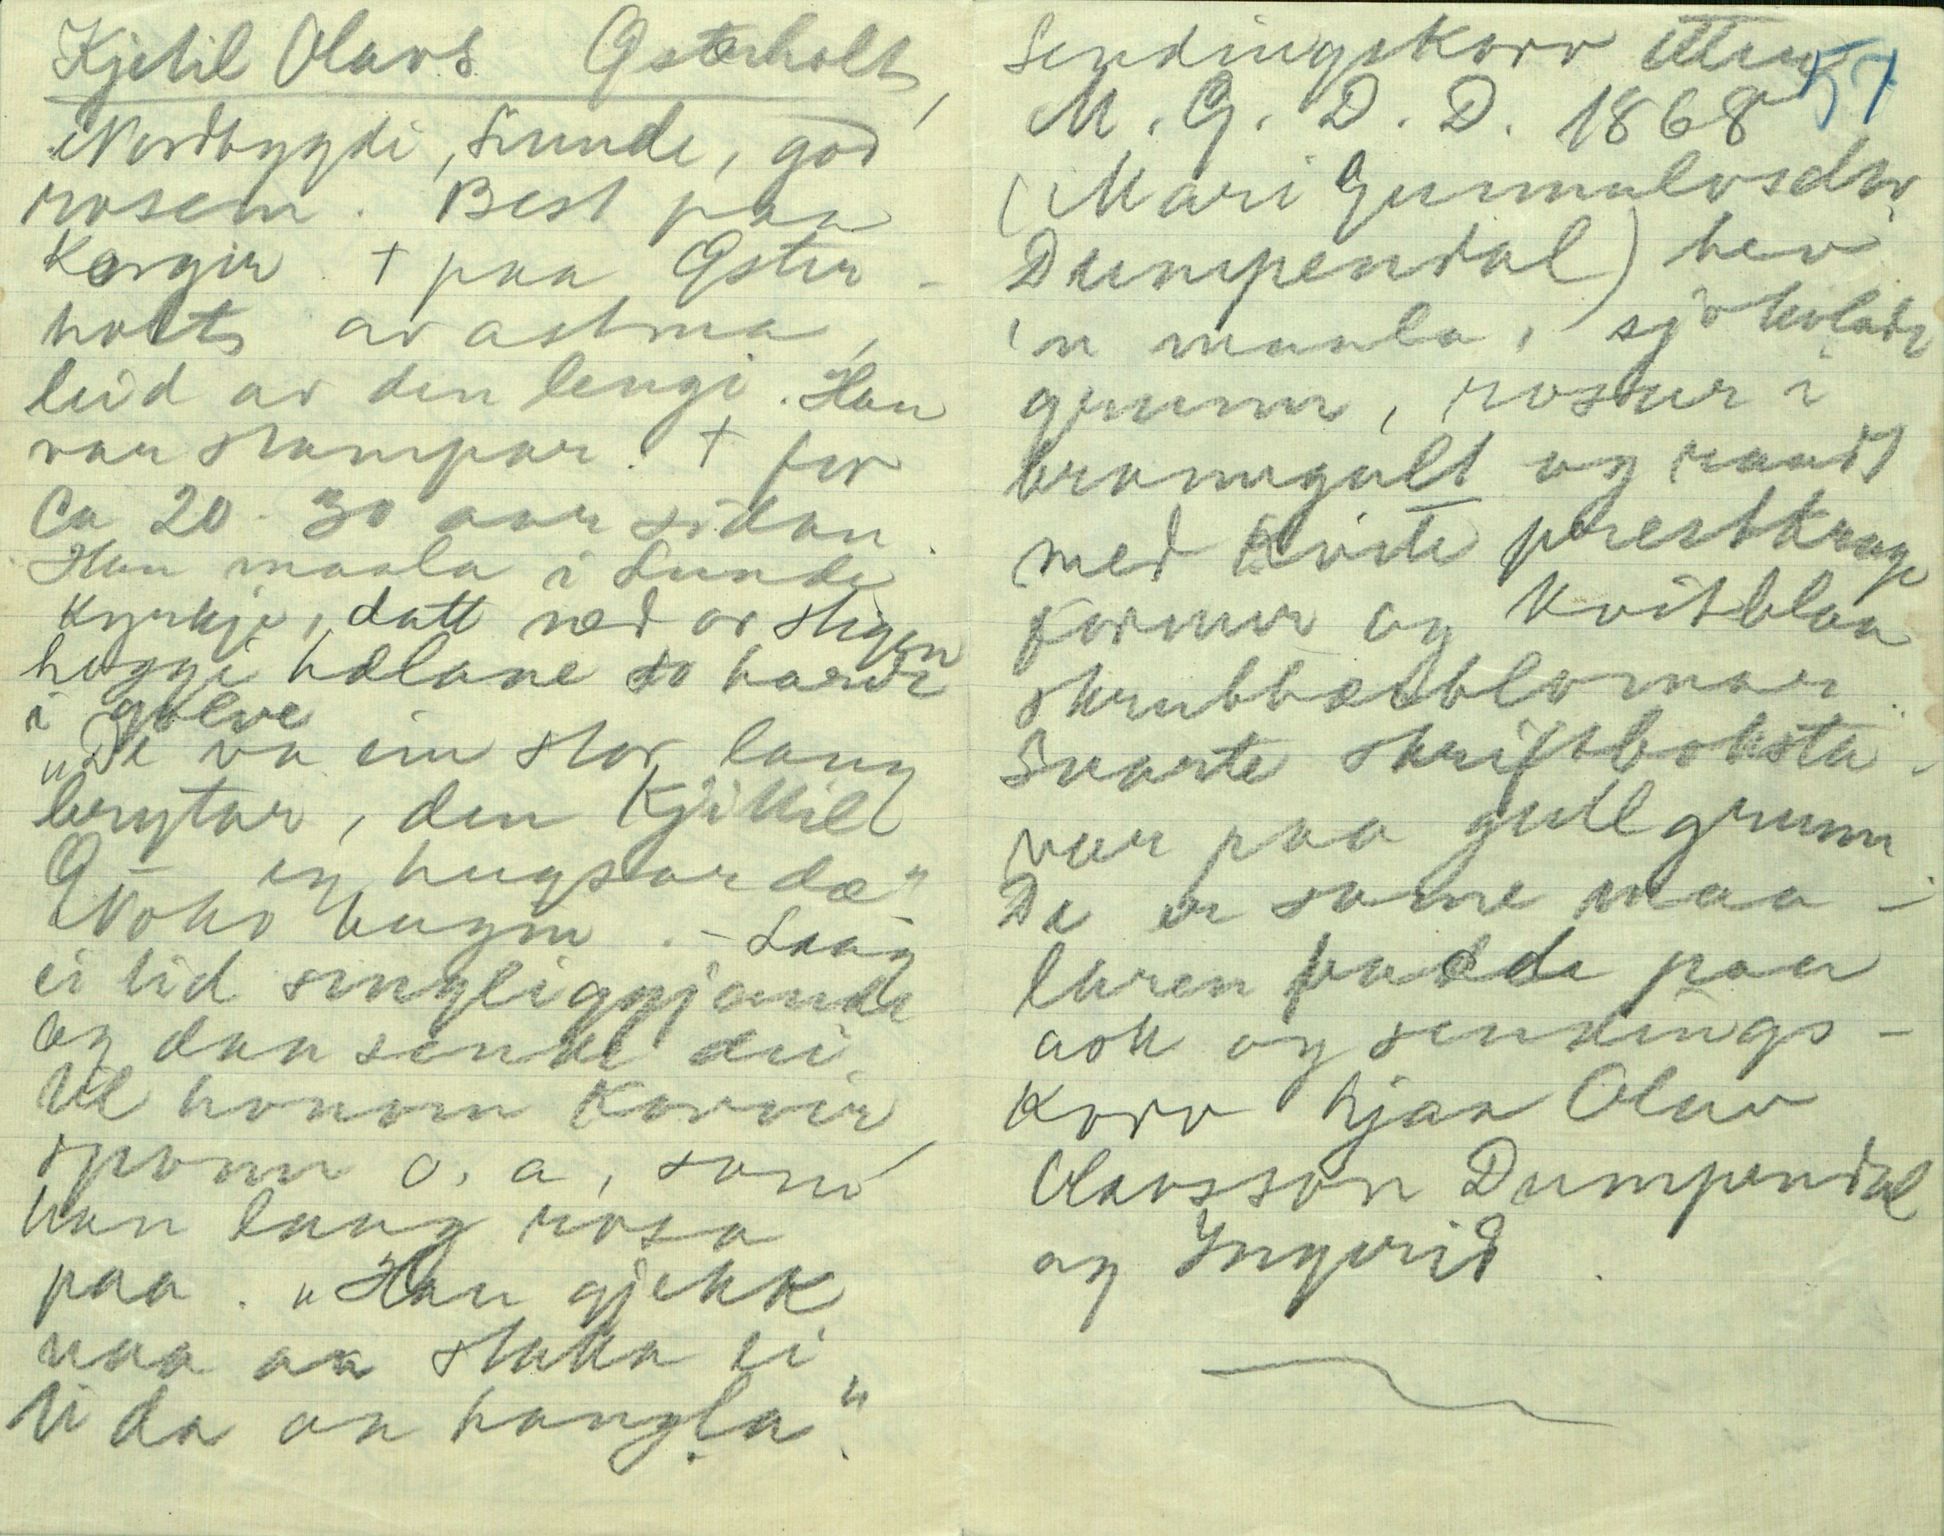 Kjetil Olavs Østerholt,
Nordbygdi, Lunde, god
rosem. Best paa
Kørgir. † paa Øster-
holts av astma,
leid av den lengi. Han
var stampar. † for
Ca 20-30 aar sidan.
Han maala i Lunde
kyrkje, datt ned av stigen
hoggi hælane so hardt
i golve
"De va ein stor, lang
brytar, den Kjittil
og hugsar dæ"
bugjen. - Laag
ei tid sengliggjande
og dansende dei
til honom korvir
sponn o. a, som
han laag rosa
paa. "Han gjekk
naa aa stakka ei
ti da aa hangla".
Sendingskorv
57
M. G. D. D. 1868
(Mari Gunnulvsdtr
Dumpendal) hev
'n maala, sjokolade
grunn, rosur i
brunngult og raadt
med kvite prestkrage
former og kvitblaa
skrubbærblomar.
Svarte skriftboksta-
var paa gull grunn
De er same maa-
laren badde paa
ask og sendings-
korv hjaa Olav
Olavsson Dumpendal
og Ingerid.